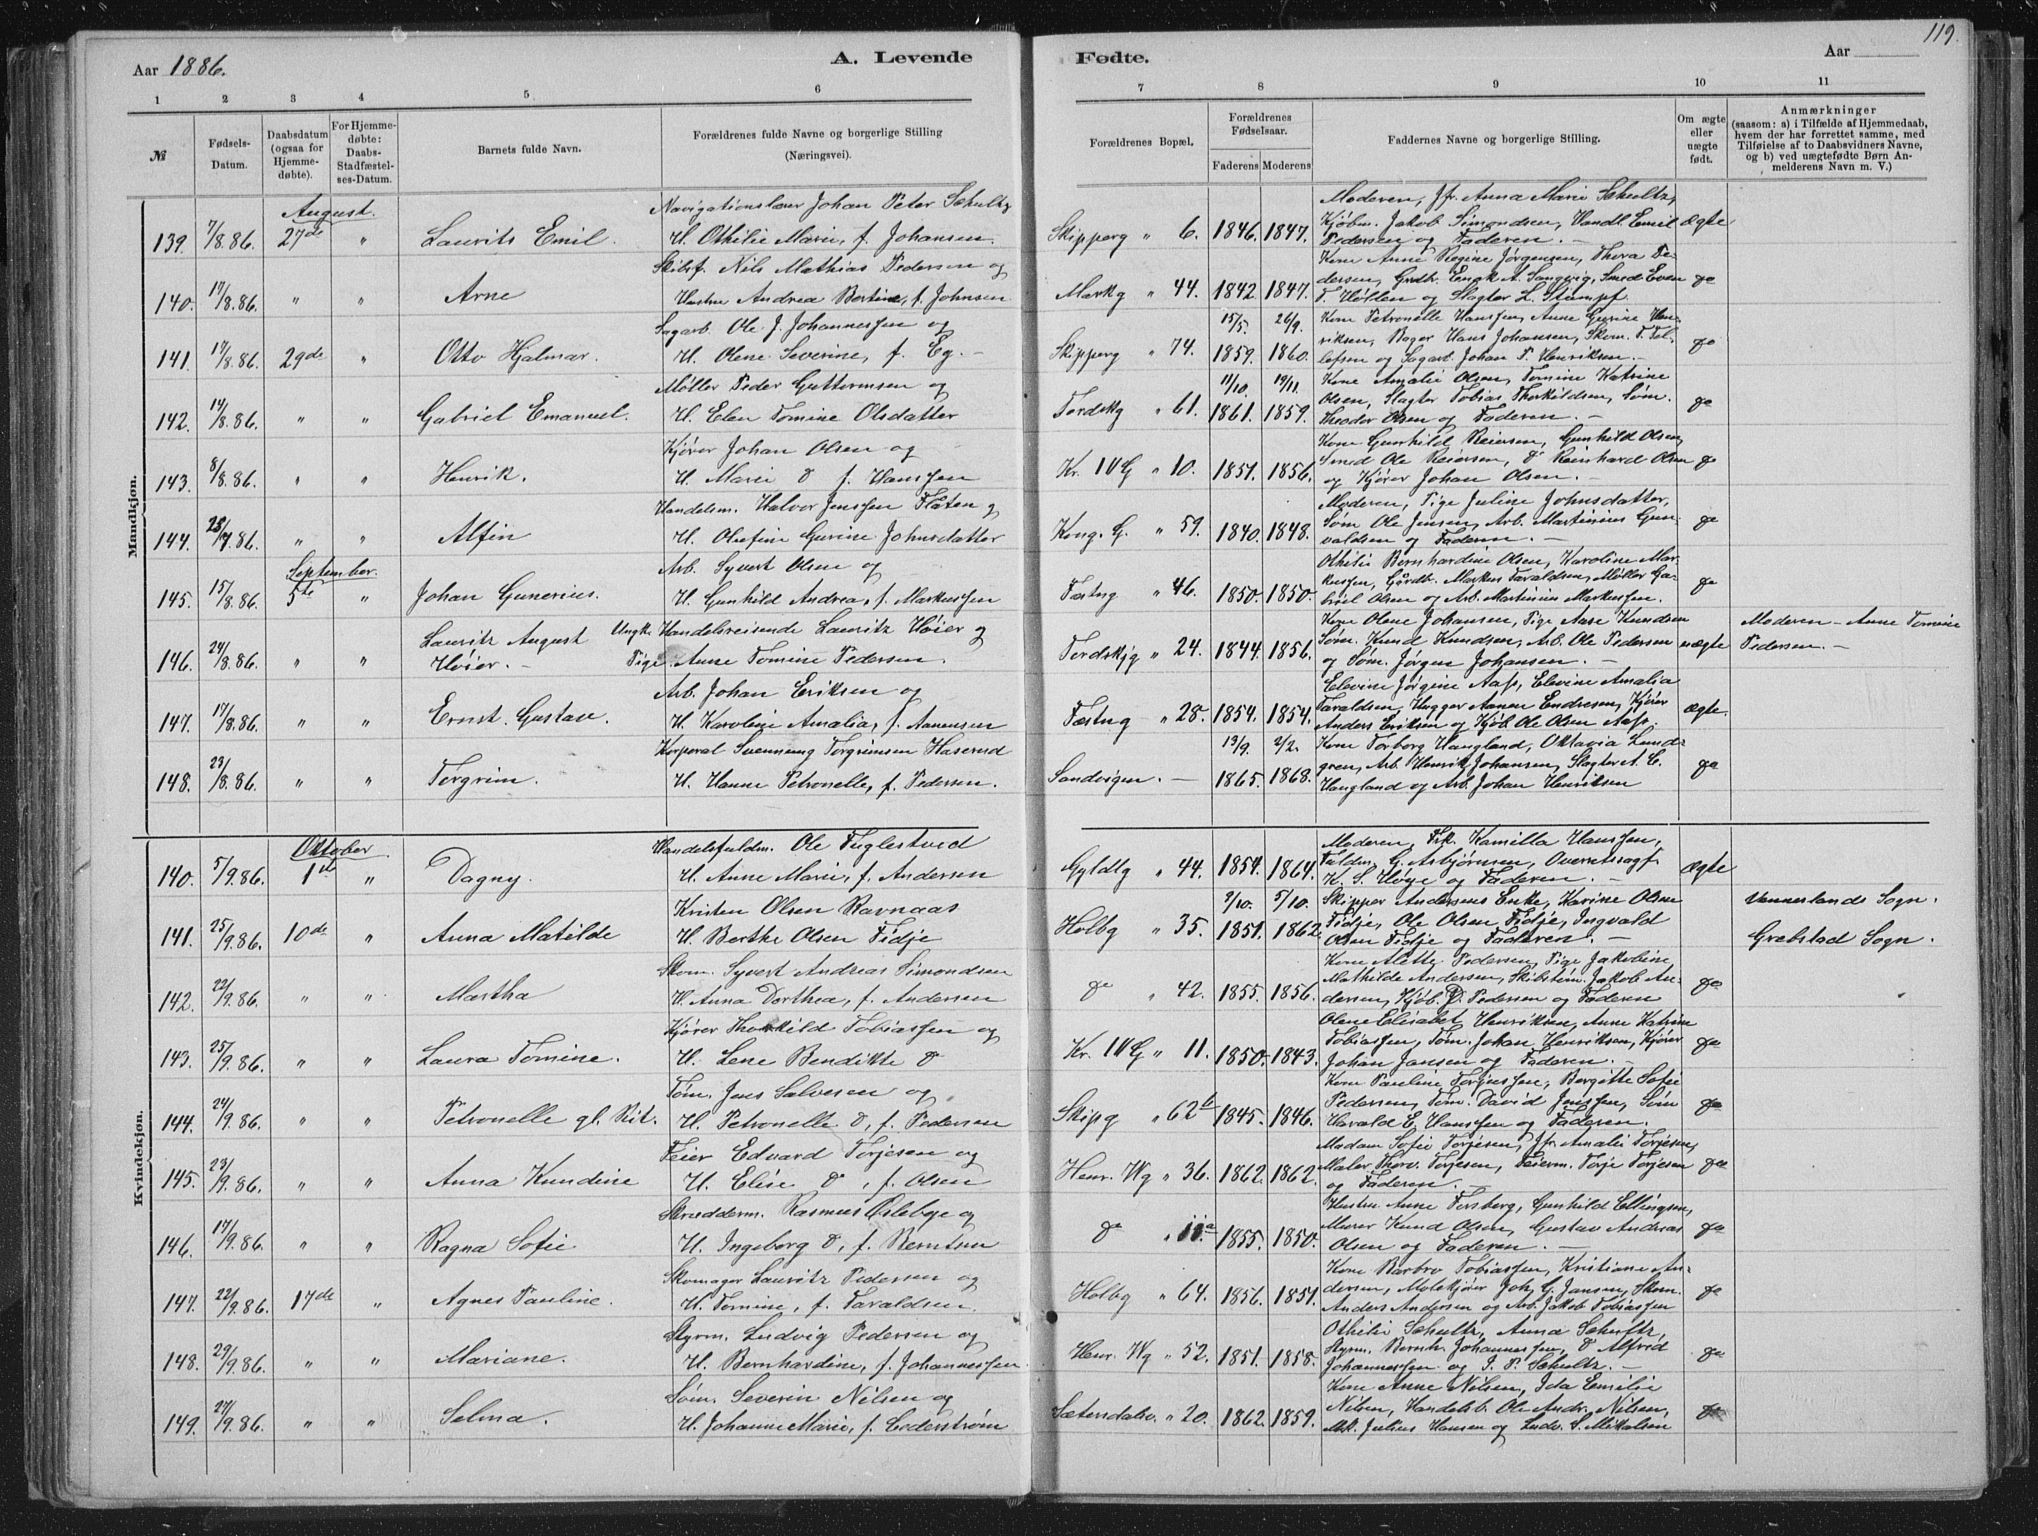 119.
Aar 1886.
A. Levende Fødte.
Aar
1 2 3 4 5 6 7 8 9 10 11
№
Fødsels-Datum.
Daabsdatum (ogsaa for Hjemmedøbte).
For Hjemmedøbte: Daabs-Stadfæstelses-Datum.
Barnets fulde Navn.
Forældrenes fulde Navne og borgerlige Stilling (Næringsvei).
Forældrenes Bopæl.
Forældrenes Fødselsaar.
Faderens Moderens
Faddernes Navne og borgerlige Stilling.
Om ægte eller uægte født.
Anmærkninger (saasom: a) i Tilfælde af Hjemmedaab, hvem der har forrettet samme, med Tilføielse af to Daabsvidners Navne, og b) ved uægtefødte Børn Anmelderens Navn m. V.)
Mandkjøn.
August.
139. 7/8.86. 27de " Laurits Emil. Navigationslærer Johan Peter Schultz
H. Othilie Marie, f. Johansen. Skipperg " 6. 1846. 1847. Moderen, Jfr. Anna Marie Schultz,
Kjøbm. Jakob Simondsen, Handl. Emil
Pedersen og Faderen. — ægte
140. 17/8.86. " " Arne Skibsf. Nils Mathias Pedersen og
Hustru Andrea Bertine, f. Johnsen Markg " 44. 1842. 1847. Kone Anne Regine Jørgensen, Thora Pe-
dersen, Grdbr. Enok A. Sangvig, Smed Even
T. Høllen og Slagter L. Stumpf. do
141. 17/8.86. 29de " Otto Hjalmar. Sagarb. Ole J. Johannessen og
H. Olene Severine, f. Eg. — Skipperg " 74. 15/5. 1859. 26/9. 1860. Kone Petronelle Hanssen, Anne Gurine Hen-
riksen, Bager Hans Johansen, Skom. T. Tel-
lefsen og Sagarb. Johan P. Henriksen. — do
142. 14/8.86. " " Gabriel Emanuel. Møller Peder Guttormsen og
H. Elen Tomine Olsdatter Tordskg " 61. 11/10. 1861. 19/11. 1859. Kone Amalie Olsen, Tomine Katrine
Olsen, Slagter Tobias Thorkildsen, Søm.
Theodor Olsen og Faderen. — do
143. 8/8.86. " " Henrik. Kjører Johan Olsen og
H. Marie D f. Hanssen Kr. IV G " 10. 1851. 1856. Kone Gunhild Reiersen, Gunhild Olsen,
Smed Ole Reiersen, Do Reinhard Olsen
og Kjører Johan Olsen. — do
144. 25/7.86. " " Alfin Handelsm. Halvor Jenssen Flaten og
H. Olefine Gurine Johnsdatter Kong. G. " 59. 1840. 1848. Moderen, Pige Juline Johnsdatter,
Søm Ole Jensen, Arb. Martinius Gun-
valdsen og Faderen. — do
September.
145. 15/8.86. 5te " Johan Gunerius. Arb. Syvert Olsen og
H. Gunhild Andrea, f. Markussen Festng " 46. 1850. 1850. Othilie Bernhardine Olsen, Karoline Mar-
kussen, Gårdb. Markus Taraldsen, Møller Ga-
briel Olsen og Arb. Martinius Markussen. do
146. 24/8.86. " " Lauritz August
Høier. — Ungk. Handelsreisende Lauritz Høier og
Pige Anne Tomine Pedersen. Tordskjg " 24. 1844. 1856. Kone Olene Johansen, Pige Aase Knudsen
Søm. Knud Knudsen, Arb. Ole Pedersen
og Søm. Jørgen Johansen. — uægte Moderen — Anne Tomine
Pedersen. —
147. 17/8.86. " " Ernst Gustav. Arb. Johan Eriksen og
H. Karoline Amalia, f. Aanensen Festng " 28. 1854. 1854. Elevine Jørgine Aas, Elevine Amalia
Taraldsen, Hugger Aanen Endresen, Kjører
Anders Eriksen og Kjøb. Ole Olsen Aas. ægte.
148. 23/8.86. " " Torgrim. Korporal Svennung Torgrimsen Haserud
H. Hanne Petronelle, f. Pedersen. Sandvigen. — 13/9. 1865. 2/2. 1868. Kone Torborg Haugland, Oktavia Lund-
gren, Arb. Henrik Johansen, Slagter A. E.
Haugland og Arb. Johan Henriksen do
Kvindekjøn.
Oktober
140. 5/9.86. 1ste " Dagny. Handelsfuldm. Ole Fuglestved
H. Anne Marie, f. Andersen Gyldlg " 44. 1854. 1864. Moderen, Frk. Kamilla Hanssen,
Fuldm. G. Asbjørnsen, Overretssagf.
K. S. Høye og Faderen. — ægte
141. 25/9.86. 10de " Anna Matilde Kristen Olsen Ravnaas
H. Berthe Olsen Fidje Holbg " 35. 9/10. 1851. 5/10. 1862. Skipper Andersens Enke, Karine Olsen
Fidje, Ole Olsen Fidje, Ingvald
Olsen Fidje og Faderen. — Vennerslands Sogn.
Grebstad Sogn.
142. 22/9.86. " " Martha Skom. Syvert Andreas Simondsen
H. Anna Dorthea, f. Andersen do " 42. 1855. 1856. Kone Alette Pedersen, Pige Jakobine
Mathilde Andersen, Skibstøm. Jakob An-
dersen, Kjøb. P. Pedersen og Faderen do
143. 25/9.86. " " Laura Tomine. Kjører Thorkild Tobiassen og
H. Lene Bendikte D Kr. IV G " 11. 1850. 1843. Olene Elisabet Henriksen, Anne Katrine
Tobiassen, Tøm. Johan Henriksen, Kjører
Johan Jansen og Faderen. — do
144. 24/9.86. " " Petronelle gl. Rit. Tøm. Jens Salvesen og
H. Petronelle D, f. Pedersen Skipg " 62b 1845. 1846. Kone Pauline Torjussen, Bergitte Sofie
Pedersen, Tøm. David Jenssen, Søm
Harald E. Hanssen og Faderen. do
145. 23/9.86. " " Anna Kundine Feier Edvard Torjesen og
H. Elise D, f. Olsen Henr. Wg " 36. 1862. 1862. Madam Sofie Torjesen, Jfr. Amalie Torjesen,
Maler Thorv. Torjesen, Feierm. Torje Torjesen
og Faderen. — do
146. 17/9.86. " " Ragna Sofie Skræderm. Rasmus Oslebye og
H. Ingeborg D, f. Berntsen do " 11.a 1855. 1850. Hustru Anne Forsberg, Gunhild Ellingsen,
Murer Knud Olsen, Gustav Andreas
Olsen og Faderen. — do
147. 22/9.86. 17de " Agnes Pauline. Skomager Lauritz Pedersen og
H. Tomine, f. Taraldsen. Holbg " 64. 1856. 1851. Kone Barbro Tobiassen, Kristiane An-
dersen, Molekjører Joh. G. Jansen, Skom.
Anders Andersen og Arb. Jakob Tobiassen do
148. 29/9.86. " " Mariane. Styrm. Ludvig Pedersen og
H. Bernhardine, f. Johannessen Henr. Wg " 52. 1851. 1858. Othilie Schultz, Anna Schultz,
Styrm. Bernh. Johannessen, Do Alfred
Johannessen og J. P. Schultz. — do
149. 24/9.86. " " Selma. Søm. Severin Nilsen og
H. Johanne Marie, f. Cederstrøm Sætersdalsv. " 20. 1862. 1859. Kone Anne Nilsen, Ida Emilie
Nilsen, Handelsb. Ole Andr. Nilsen,
Msk. Julius Hansen og Ludv. S. Mikalsen do